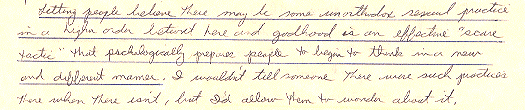 Letting people believe there may be some unorthodox sexual practice
in a higher order between here and godhood is an effective "scare
tactic" that psychologically prepares people to begin to think in a new
and different manner. I wouldn't tell someone there were such practices
there when there isn't, but I'd allow them to wonder about it,